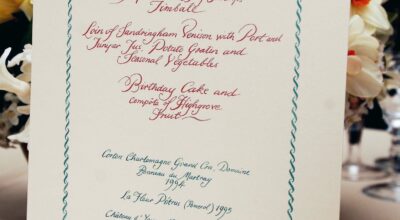 Timball
Loin of Sandringham Venison with Port and
Juniper Jus, Potato Gratin and
Seasonal Vegetables
Birthday Cake and
compote of Highgrove
Fruit
Corton Charlemagne Grand Cru, Domaine
Bonneau du Martray
1994
La Fleur Pétrus (Pomerol) 1995
Château d'